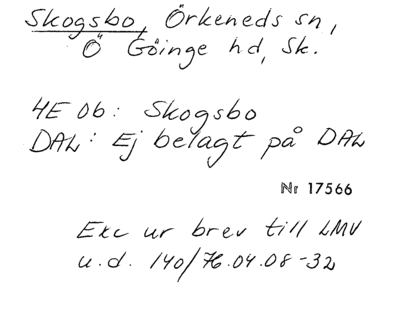 Skogsbo, Örkeneds sn,
Ö Göinge hd, Sk.
4E 0b: Skogsbo
DAL: Ej belagt på DAL
Nr 17566
Exc ur brev till LMV
u.d. 140/76.04.08-32